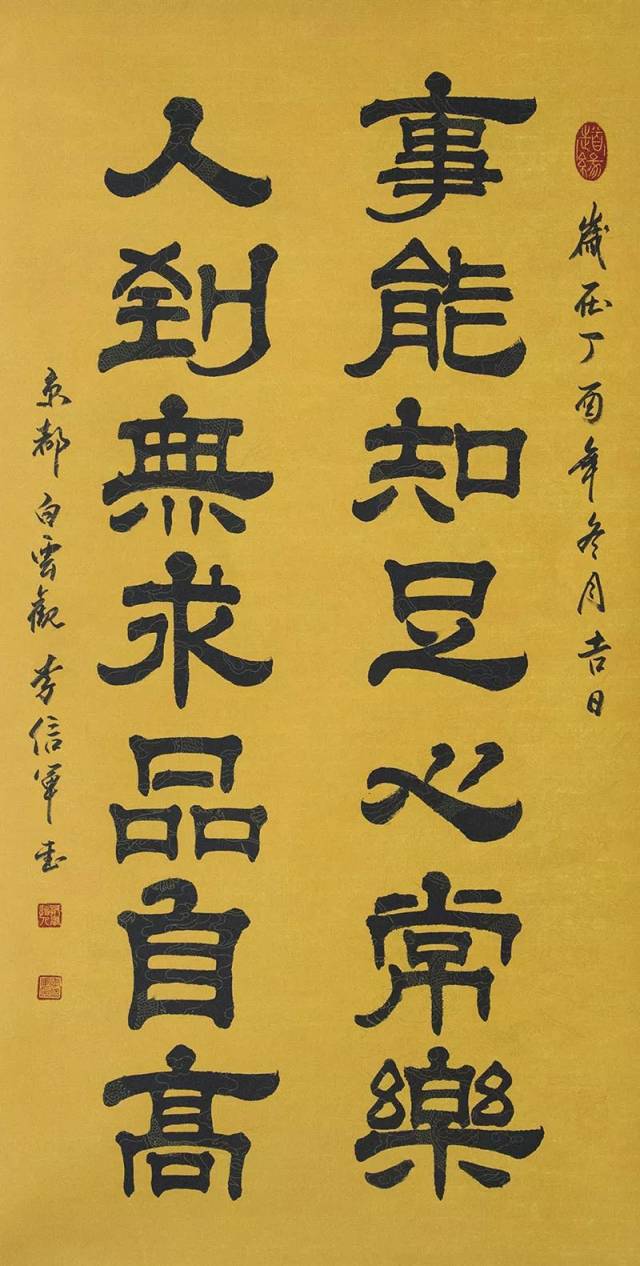 歲在丁酉年冬月吉日
事能知足心常樂
人到無求品自高
京都白雲觀李信軍書